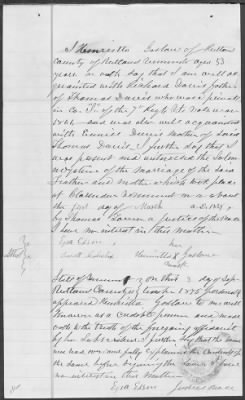 I Henrietta Gaslow of Rutland
County of Rutland Vermont aged 53
years on oath say that I am well ac
quainted with Richard Davis father
of Thomas Davis who was a private
in Co. of the 7" Regt Vols war
1861 and was also well acquainted
with Eunice Davis Mother of said
Thomas Davis. I further say that I
was present and witnessed the Solem
nization of the Marriage of the said
Father and Mother which took place
at Clarendon Vermont on or about
the first day of March A.D. 1839
by Thomas a Justice of the Peace
I have no interest in this matter
Ezra Edson her
Henrietta X Gaslow
mark
State of Vermont on this day Sept
Rutland County 1878 personally
appeared Henrietta Gaslow to me well
known as a credible person and made
oath to the truth of the foregoing affidavit
by her Subscribed I further say that the same
was read over and fully explained the contents of
the same before signing the same I have
no interest in this Matter
Ezra Edson Justice of Peace